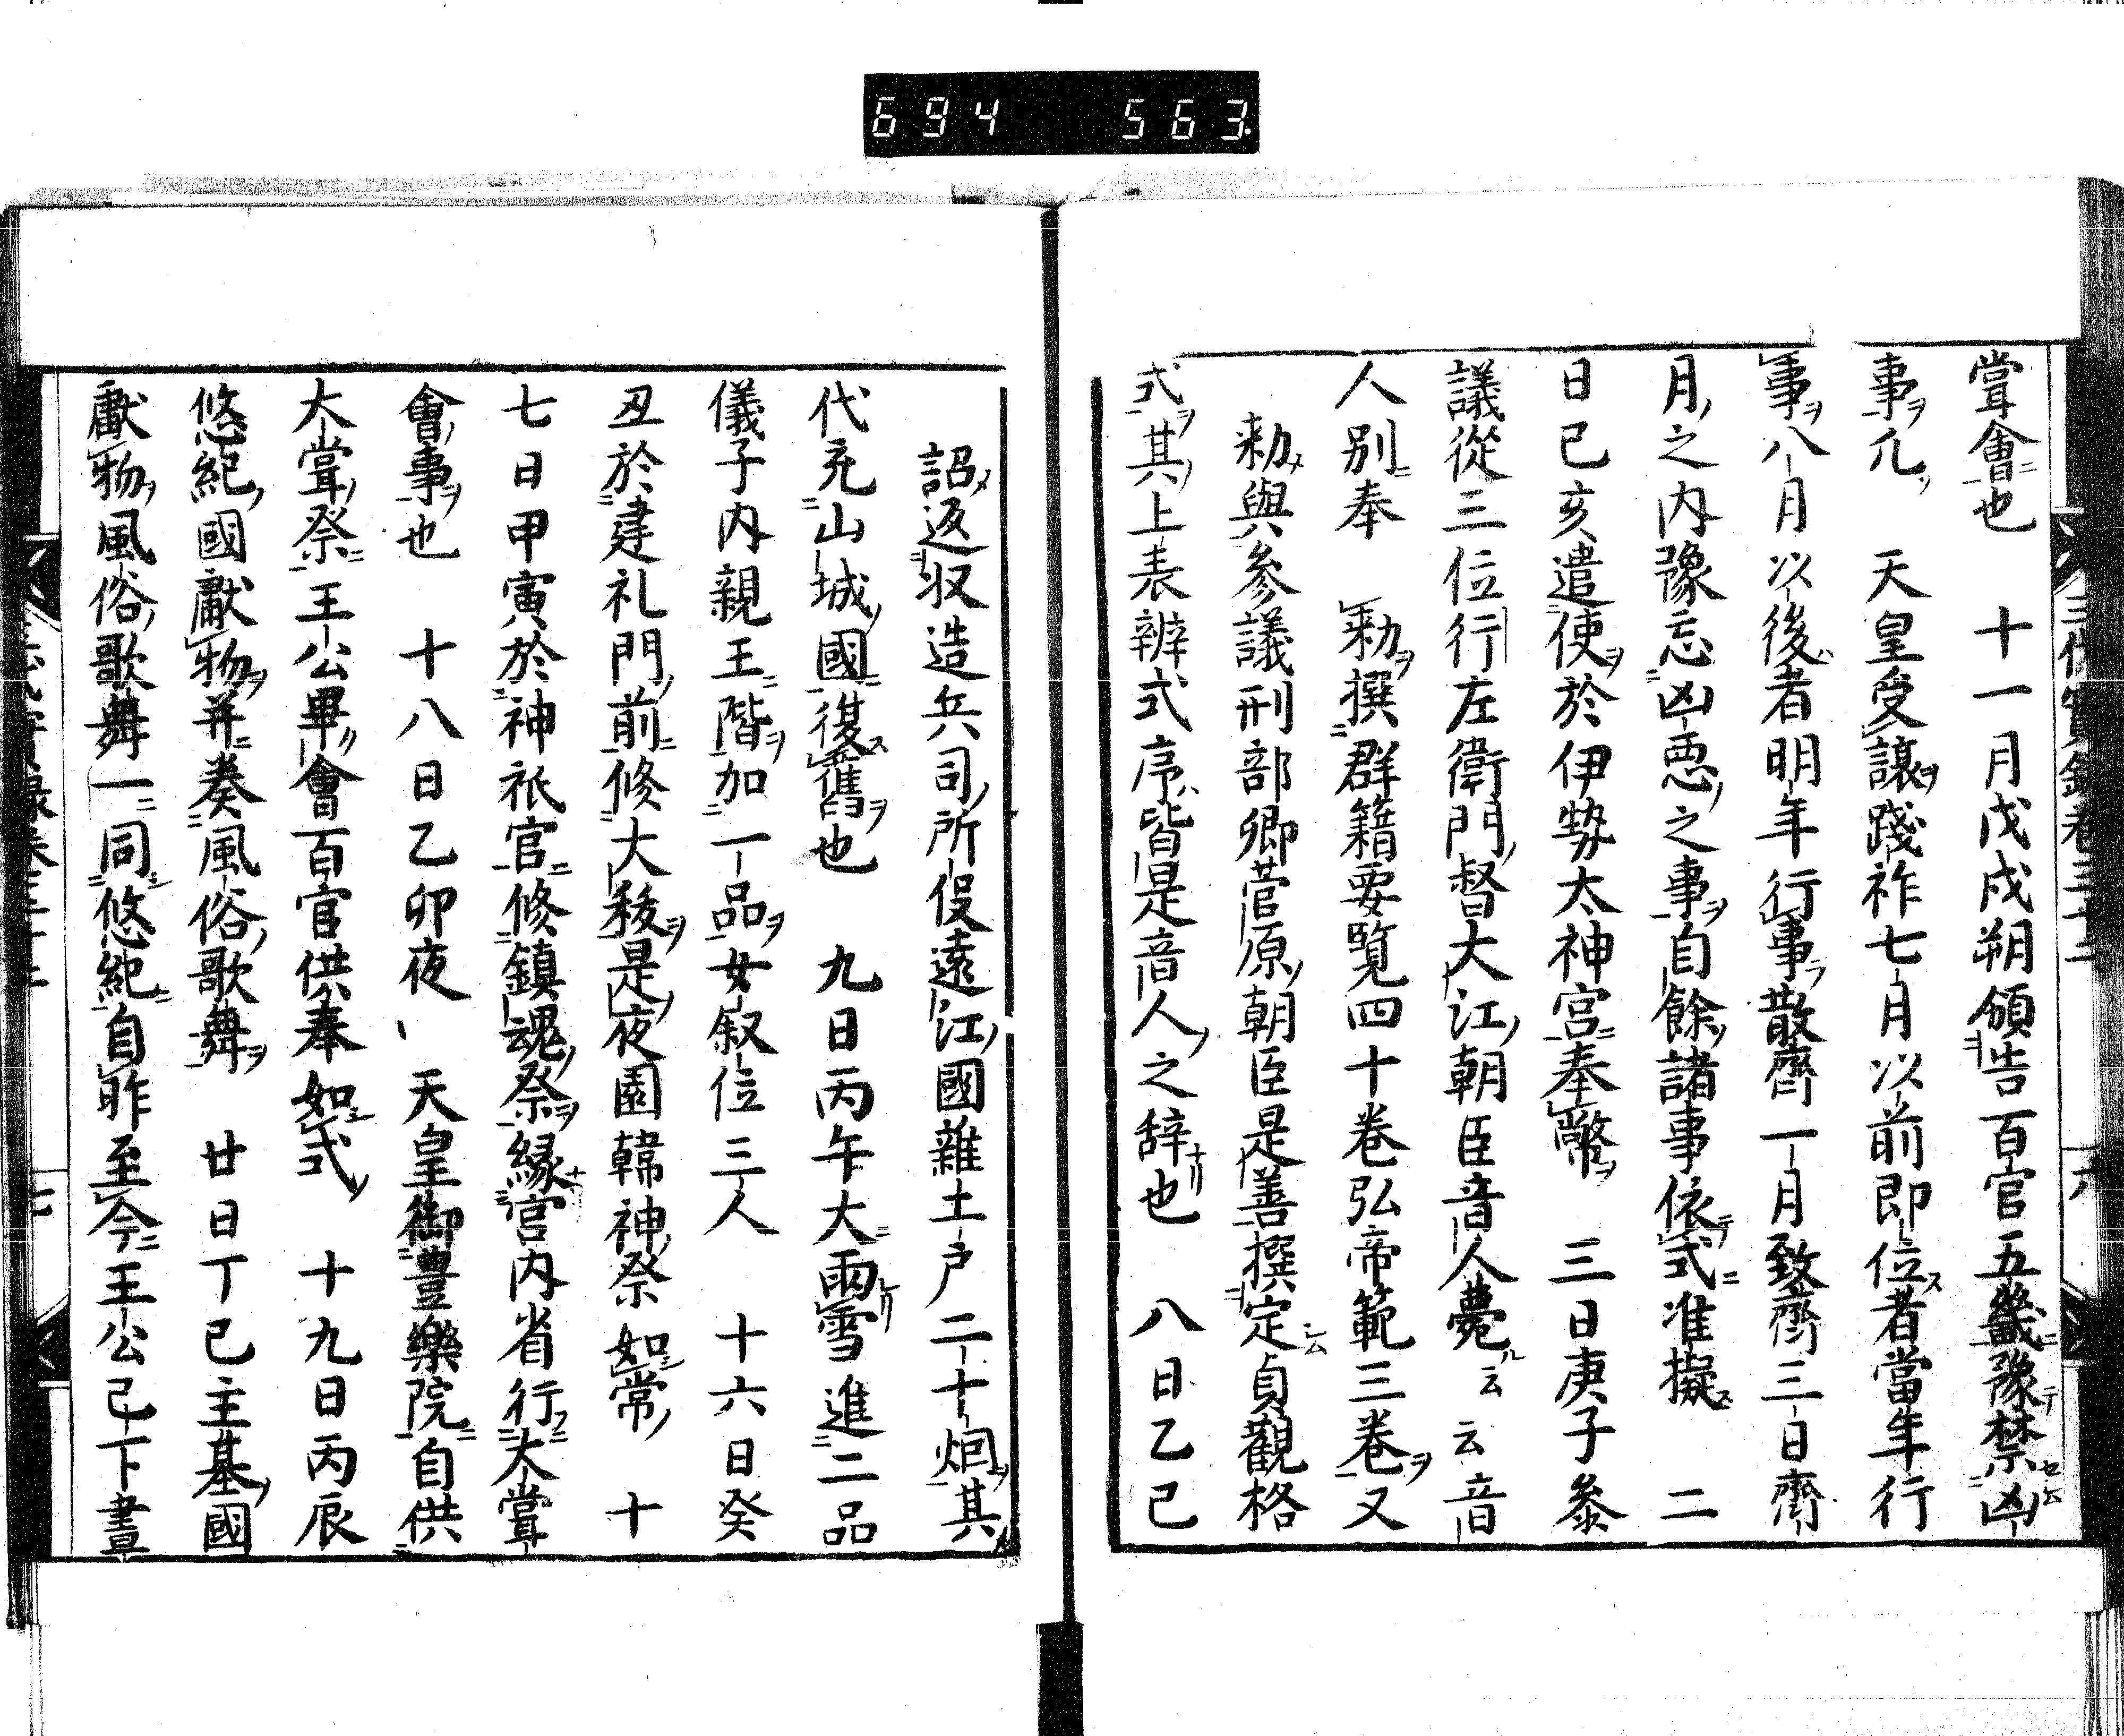 694 563.
嘗會也 十一月戊戌朔頒告百官五畿豫禁凶
事凢 天皇受讓踐祚七月以前即位者當年行
事八月以後者明年行事散齊一月致齊三日齊
月之内豫忘凶悪之事自餘諸事依式准擬 二
日己亥遣使於伊勢太神宮奉幣 三日庚子叅
議從三位行左衛門督大江朝臣音人薨云云音
人別奉 勑撰群籍要覧四十巻弘帝範三巻又
勑與參議刑部卿菅原朝臣是善撰定貞觀格
式其上表辨式序皆是音人之辞也 八日乙巳
詔返収造兵司所役遠江國雜土戸二十烟其
代充山城國復舊也 九日丙午大雨雪進二品
儀子内親王階加一品女叙位三人 十六日癸
丑於建礼門前修大祓是夜園韓神祭如常 十
七日甲寅於神祇官修鎮魂祭縁宮内省行大嘗
會事也 十八日乙卯夜 天皇御豊樂院自供
大嘗祭王公畢會百官供奉如式 十九日丙辰
悠紀國獻物并奏風俗歌舞 廿日丁巳主基國
獻物風俗歌舞一同悠紀自昨至今王公已下晝